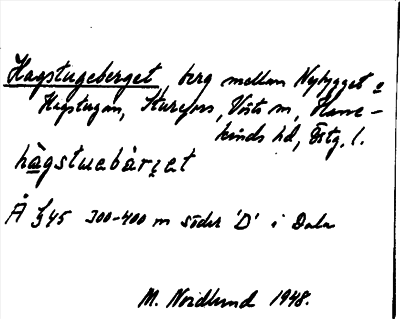 Hagstugeberget, berg mellan Nybygget o
Hagstugan, Sturefors, Vists sn, Hane-
kinds hd, Östg. l.
hàgstuabàrjet
Å f 45 300-400 m söder 'D' i Dala
M. Nordlund 1948.